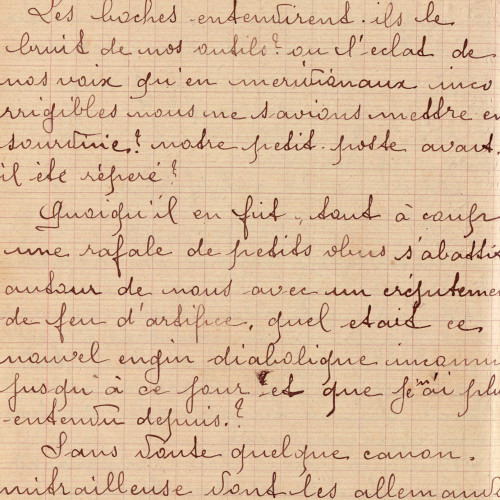 Les boches entendirent-ils le
bruit de nos outils? ou l'éclat de
nos voix qu'en méridionaux inco
rrigibles nous ne savions mettre en
sourdine? notre petit poste avait
il été réperé?
Quoiqu'il en fut, tout à coup
une rafale de petits obus s'abattit
autour de nous avec un crépitement
de feu d'artifice, quel etait ce
nouvel engin diabolique inconnu
jusqu'à ce jour et que je n'ai plus
entendu depuis?
Sans doute quelque canon-
mitrailleuse dont les allemands